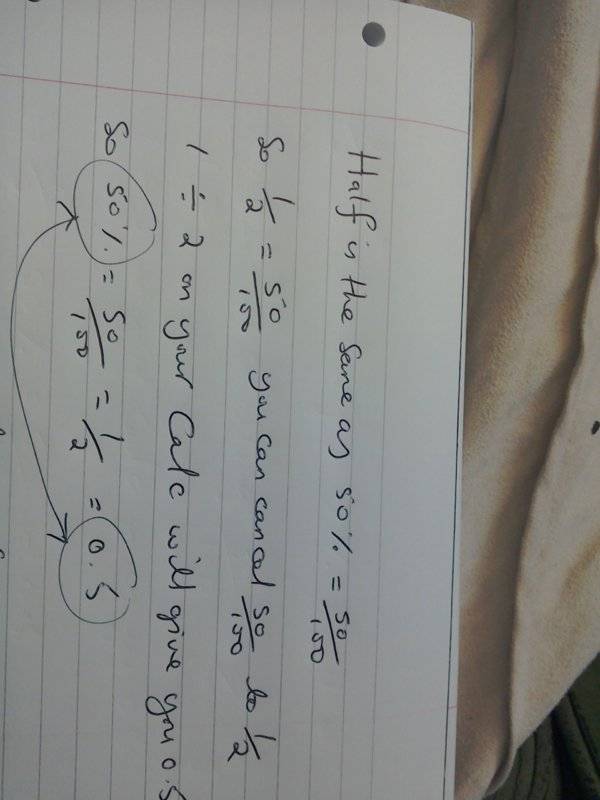 Half is the same as 50% = 50/100
So 1/2 = 50/100 you can cancel 50/100 to 1/2
1 ÷ 2 on your Calc will give you 0.5
So 50% = 50/100 = 1/2 = 0.5